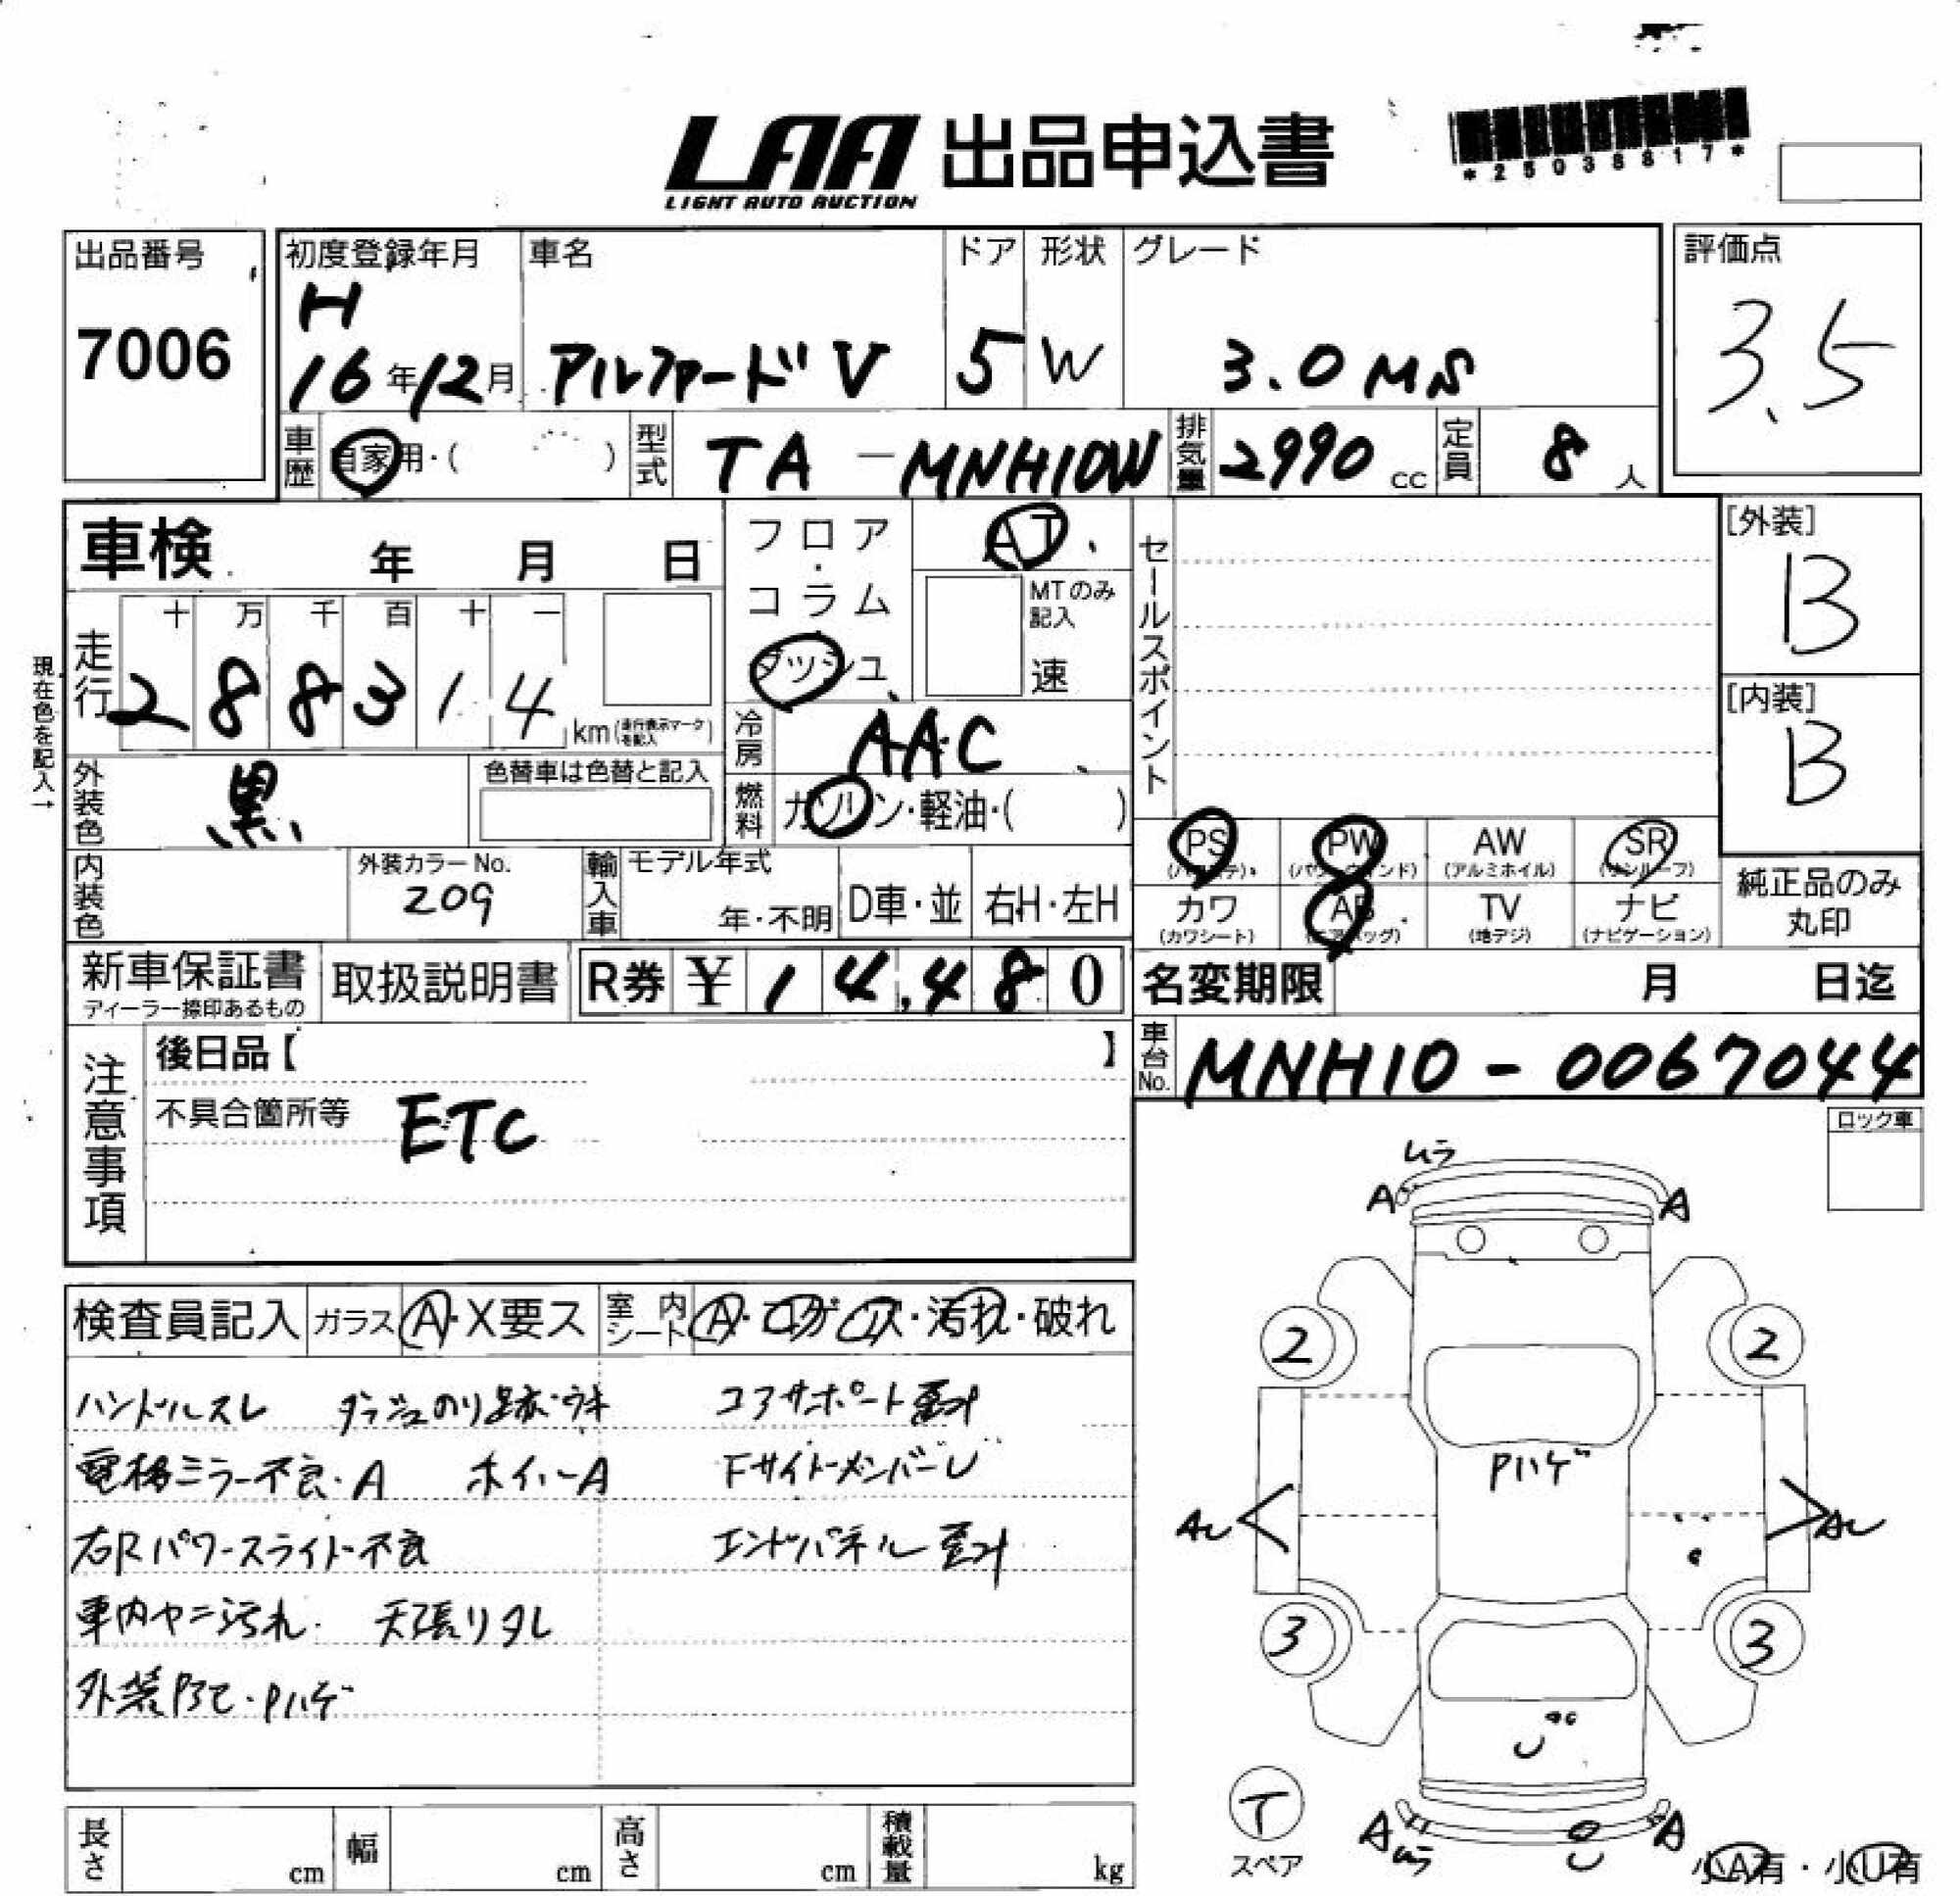 LAA 出品申込書
LIGHT AUTO AUCTION
*25038817*
出品番号
7006
初度登録年月 車名 ドア 形状 グレード 評価点
H
16年12月 アルファードV 5 W 3.0 MS 3.5
車歴 自家用・( ) 型式 TA-MNH10W 排気量 2990cc 定員 8人
車検 年 月 日
フロア・コラム
ダッシュ
AT
MTのみ記入
速
セールスポイント
[外装]
B
[内装]
B
現在色を記入→
走行 十 万 千 百 十 一
2 8 8 3 1 4 km(走行表示マークを記入)
冷房 AAC
外装色 黒 色替車は色替と記入
燃料 ガソリン・軽油・( )
PS (パワステ) PW (パワーウインド) AW (アルミホイル) SR (サンルーフ)
カワ (カワシート) AB (エアバッグ) TV (地デジ) ナビ (ナビゲーション)
純正品のみ
丸印
内装色 外装カラーNo. 209
輸入車 モデル年式 年・不明 D車・並 右H・左H
新車保証書 ディーラー捺印あるもの 取扱説明書 R券 ¥14,480
名変期限 月 日迄
車台No. MNH10-0067044
注意事項
後日品【 】
不具合箇所等 ETC
ロック車
検査員記入 ガラス A・X要ス 室内シート A・コゲ・ス・汚れ・破れ
ハンドルスレ ダッシュのり跡・ウキ コアサポート歪み
電格ミラー不良・A ホイールA FサイドメンバーU
右Rパワースライド不良 エンドパネル歪み
車内ヤニ汚れ 天張りタレ
外装 Pハゲ
ムラ
A A
2 2
Pハゲ
AU AU
3 3
U
T
スペア
A ムラ
A
U
小A有・小U有
長さ cm 幅 cm 高さ cm 積載量 kg